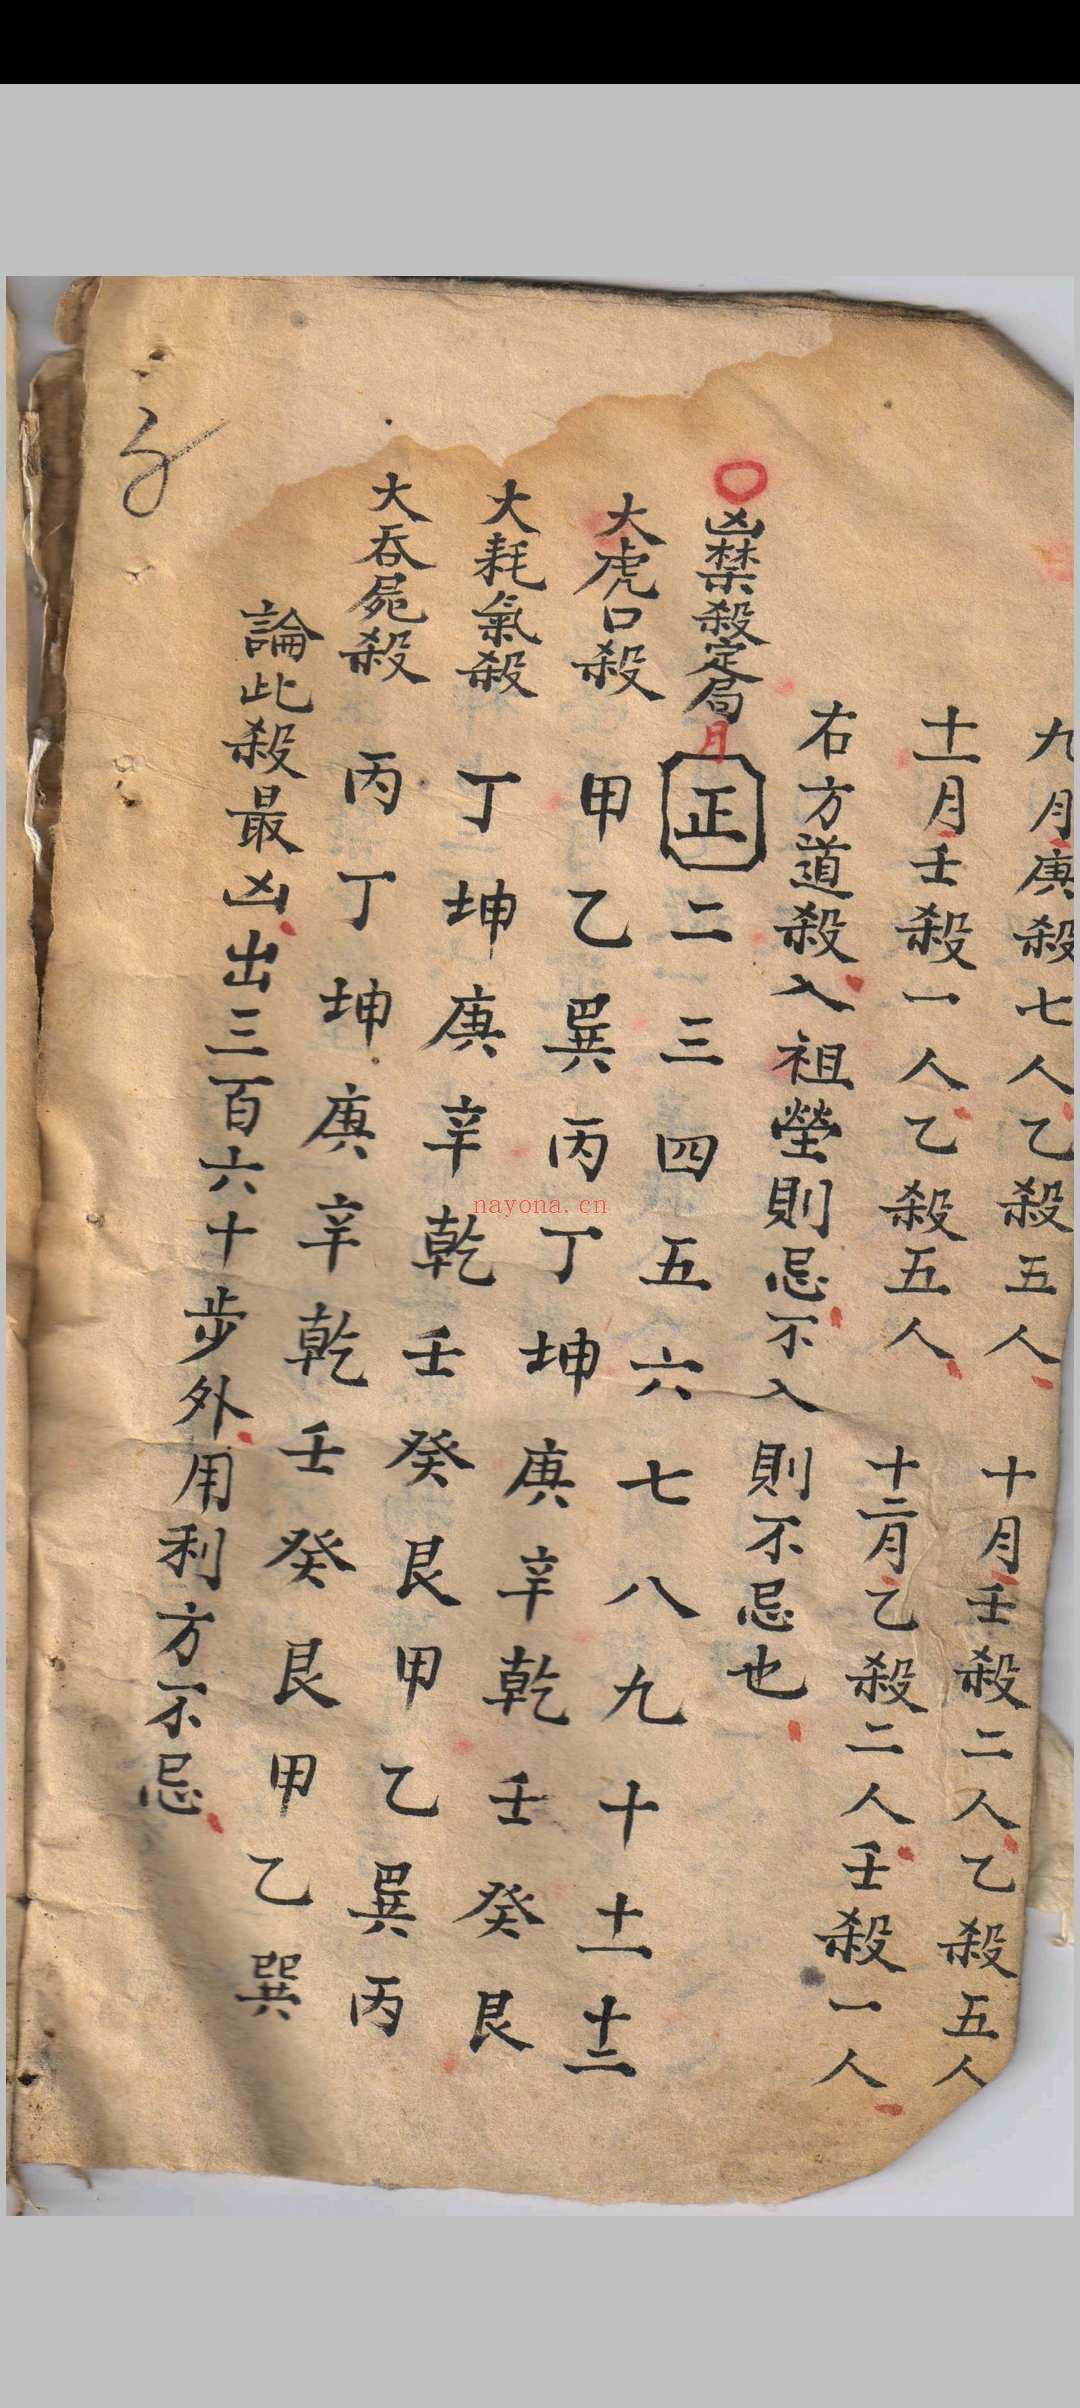 九月庚殺七人乙殺五人 十月壬殺二人乙殺五人
十一月壬殺一人乙殺五人 十二月乙殺二人壬殺一人
右方道殺入祖塋則忌不入則不忌也
○凶禁殺定局月正二三四五六七八九十十一十二
大虎口殺 甲乙巽丙丁坤庚辛乾壬癸艮
大耗氣殺 丁坤庚辛乾壬癸艮甲乙巽丙
大吞屍殺 丙丁坤庚辛乾壬癸艮甲乙巽
論此殺最凶出三百六十步外用利方不忌
nayona.cn